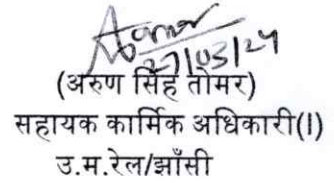 27/03/24
(अरुण सिंह तोमर)
सहायक कार्मिक अधिकारी(I)
उ.म.रेल/झाँसी